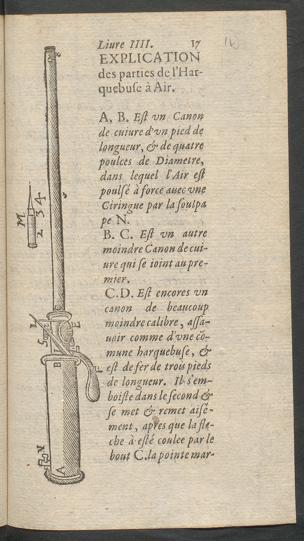 Liure IIII. 17
EXPLICATION
des parties de l'Har-
quebuse à Air.
A, B. Est vn Canon
de cuiure d'vn pied de
longueur, & de quatre
poulces de Diametre,
dans lequel l'Air est
poulsé à force auec vne
Ciringue par la soulpa
pe N.
B. C. Est vn autre
moindre Canon de cui-
ure qui se ioint au pre-
mier.
C.D. Est encores vn
canon de beaucoup
moindre calibre, assa-
uoir comme d'vne cõ-
mune harquebuse, &
est de fer de trois pieds
de longueur. Il s'em-
boiste dans le second &
se met & remet aisé-
ment, apres que la fle-
che à esté coulee par le
bout C. la pointe mar-
M
2 3 4
E
B
N
A